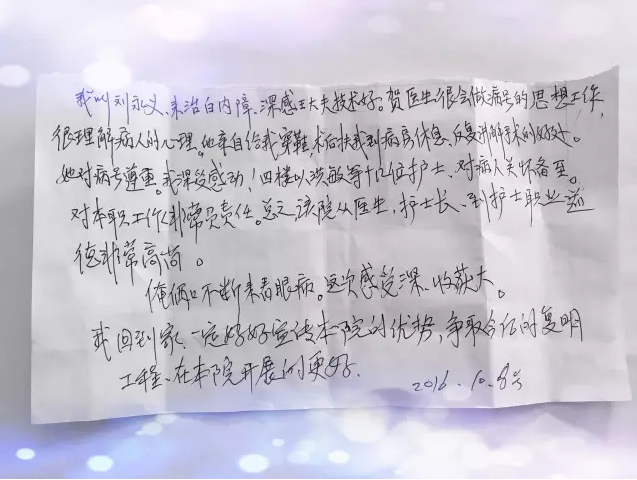 我叫刘永义、来治白内障、深感王大夫技术好。贺医生很会做病号的思想工作,
很理解病人的心理。他亲自给我穿鞋,术后扶我到病房休息,反复讲解手术的好处。
她对病号尊重。我深受感动!四楼以洪敏等十几位护士、对病人关怀备至。
对本职工作非常负责任。总之该院从医生,护士长、到护士职业道
德非常高尚。
俺俩口不断来看眼病。这次感受深、收获大。
我回到家、一定好好宣传本院的优势,争取今后的复明
工程、在本院开展的更好.
2016.10.8号